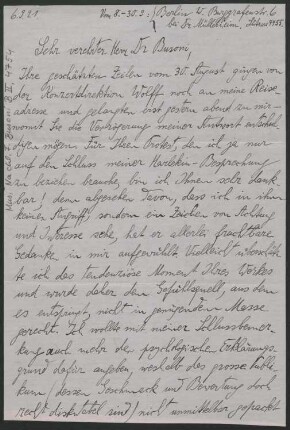 6.2.21
Vom 8.-30.2.) Berlin W. Burggrafenstr. 6
bei Dr. Mühlheim,
Mus. Nachl. F. Busoni B II, 4754
Sehr verehrter Herr Dr Busoni,
Ihre geschätzten Zeilen vom 30. August gingen von
der Konzertdirektion Wolff noch an meine Reise-
adresse und gelangten erst gestern abend zu mir-
womit Sie die Verzögerung meiner Antwort entschul-
digen mögen. Für Ihren Protest, den ich ja nur
auf den Schluss meiner Harlekin-Besprechung
zu beziehen brauche, bin ich Ihnen sehr dank-
bar; denn abgesehen davon, dass ich in ihm
keinen Angriff, sondern ein Zeichen von Achtung
und Interesse sehe, hat er allerlei fruchtbare
Gedanken in mir aufgewühlt. Vielleicht überschätz-
te ich das tendenziöse Moment Ihres Werkes
und wurde daher dem Gefühlsquell, aus dem
es entspringt, nicht in genügendem Masse
gerecht. Ich wollte mit meiner Schlussbemer-
kung auch mehr den psychologischen Erklärungs-
grund dafür angeben, weshalb das grosse Publi-
kum (dessen Geschmack und Bewertung doch
recht diskutabel sind) nicht unmittelbar gepackt